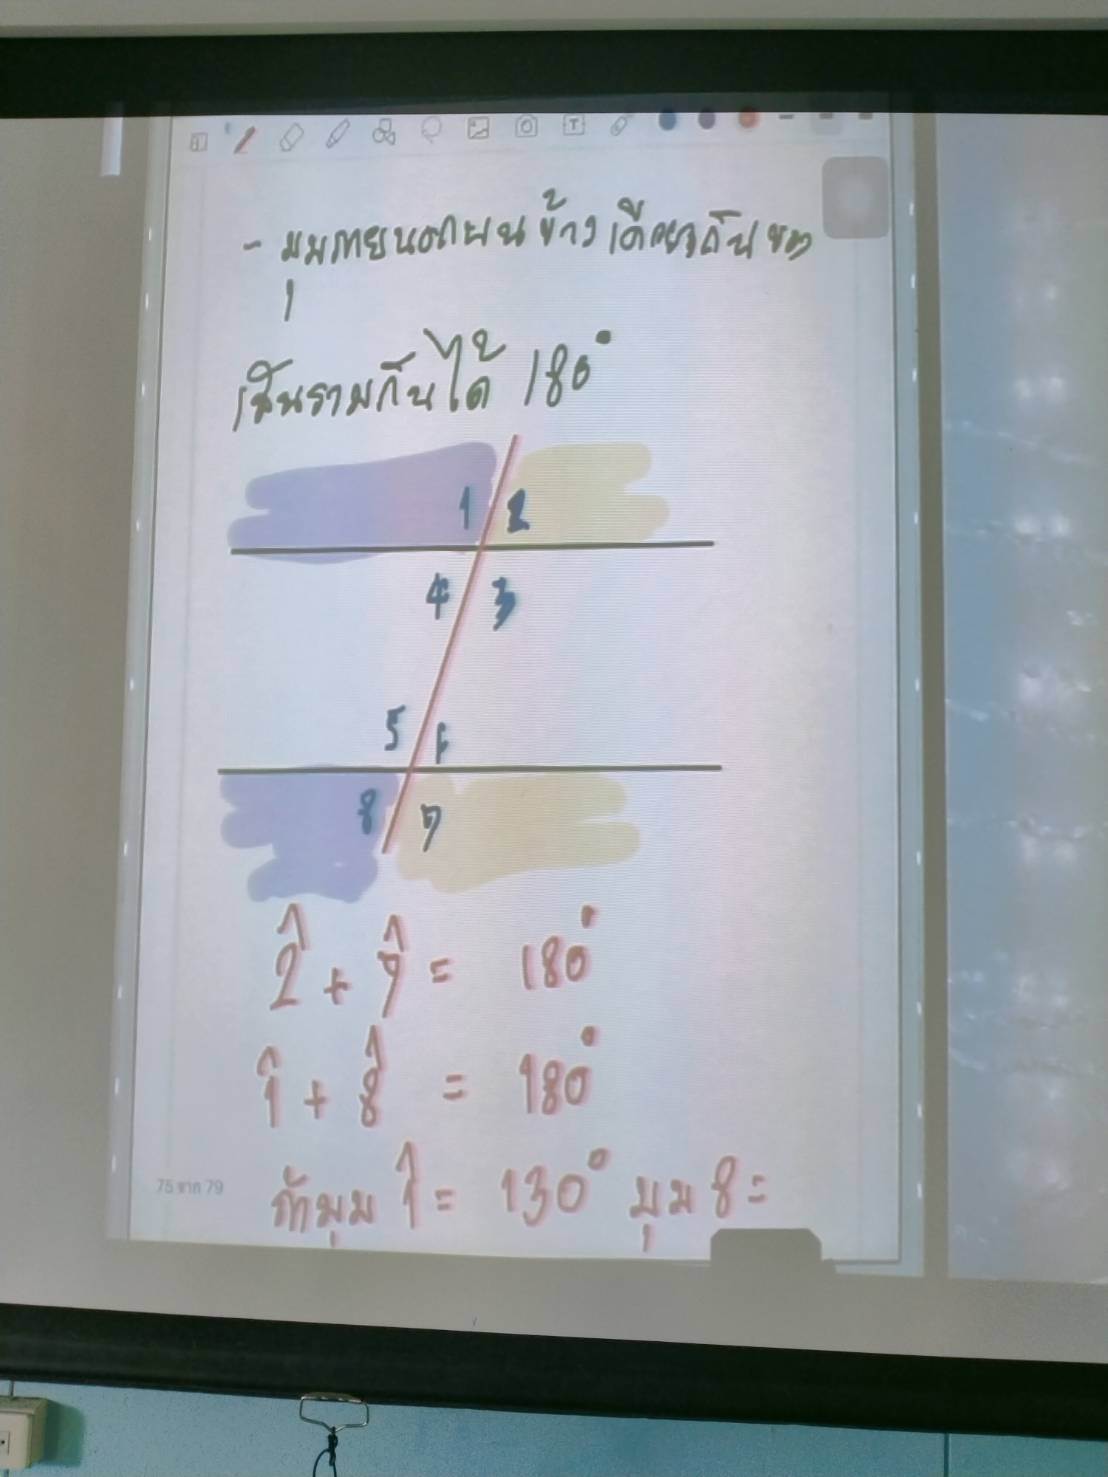 - มุมภายนอกบนข้างเดียวกันของ
เส้นรวมกันได้ 180°
1 2
4 3
5 6
8 7
2̂ + 7̂ = 180°
1̂ + 8̂ = 180°
ถ้ามุม 1̂ = 130° มุม 8 =
75 จาก 79